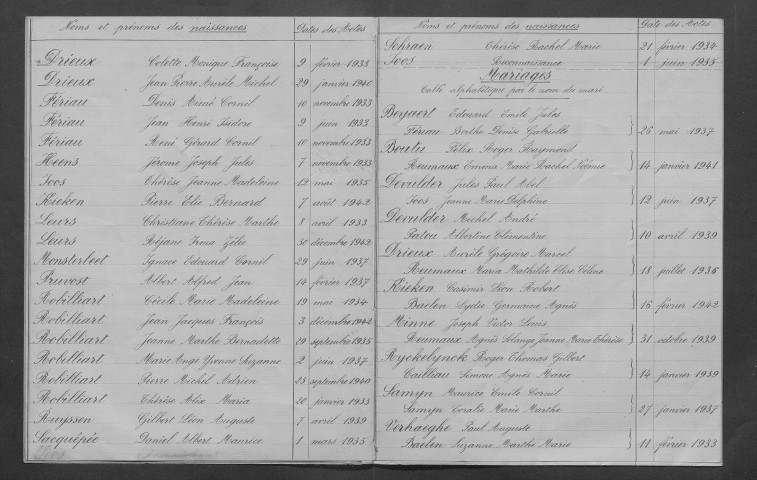 Noms et prénoms des naissances Dates des Actes
Drieux Colette Monique Françoise 9 février 1933
Drieux Jean Pierre Aurèle Michel 29 janvier 1940
Fériau Denis Aimé Cornil 10 novembre 1933
Fériau Jean Henri Isidore 9 juin 1933
Fériau René Gérard Cornil 10 novembre 1933
Heens Jérome Joseph Jules 7 novembre 1933
Joos Thérèse Jeanne Madeleine 12 mai 1935
Kieken Pierre Elie Bernard 7 août 1942
Leurs Christiane Thérèse Marthe 8 avril 1933
Leurs Réjane Irma Zélie 30 décembre 1942
Monsterleet Ignace Edouard Cornil 29 juin 1937
Pruvost Albert Alfred Jean 14 février 1937
Robilliart Cécile Marie Madeleine 19 mai 1934
Robilliart Jean Jacques François 3 décembre 1942
Robilliart Jeanne Marthe Bernadette 29 septembre 1935
Robilliart Marie Ange Yvonne Suzanne 2 juin 1937
Robilliart Pierre Michel Adrien 23 septembre 1940
Robilliart Thérèse Alix Maria 20 janvier 1933
Ruyssen Gilbert Léon Auguste 7 avril 1939
Sacquépée Daniel Albert Maurice 1 mars 1935
Noms et prénoms des naissances Date des Actes
Schraen Thérèse Rachel Marie 21 février 1934
Joos Reconnaissance 1 juin 1935
Mariages
Table alphabétique par le nom du mari
Beyaert Edouard Emile Jules
Fériau Berthe Denise Gabrielle 26 mai 1937
Boutu Félix Roger Raymond
Reumaux Emma Marie Rachel Noémie 14 janvier 1941
Devulder Jules Paul Abel
Joos Jeanne Marie Delphine 12 juin 1937
Devulder Michel André
Patou Albertine Clémentine 10 avril 1939
Drieux Aurèle Grégoire Marcel
Reumaux Maria Mathilde Elise Céline 18 juillet 1936
Kieken Casimir Léon Robert
Baelen Lydie Germaine Agnès 16 février 1942
Minne Joseph Victor Louis
Reumaux Agnès Solange Jeanne Marie Thérèse 31 octobre 1939
Ryckelynck Roger Thomas Gilbert
Cailliau Simone Agnès Marie 14 janvier 1939
Samyn Maurice Emile Cornil
Samyn Coralie Marie Marthe 27 janvier 1937
Verhaeghe Paul Auguste
Baelen Suzanne Marthe Marie 11 février 1933